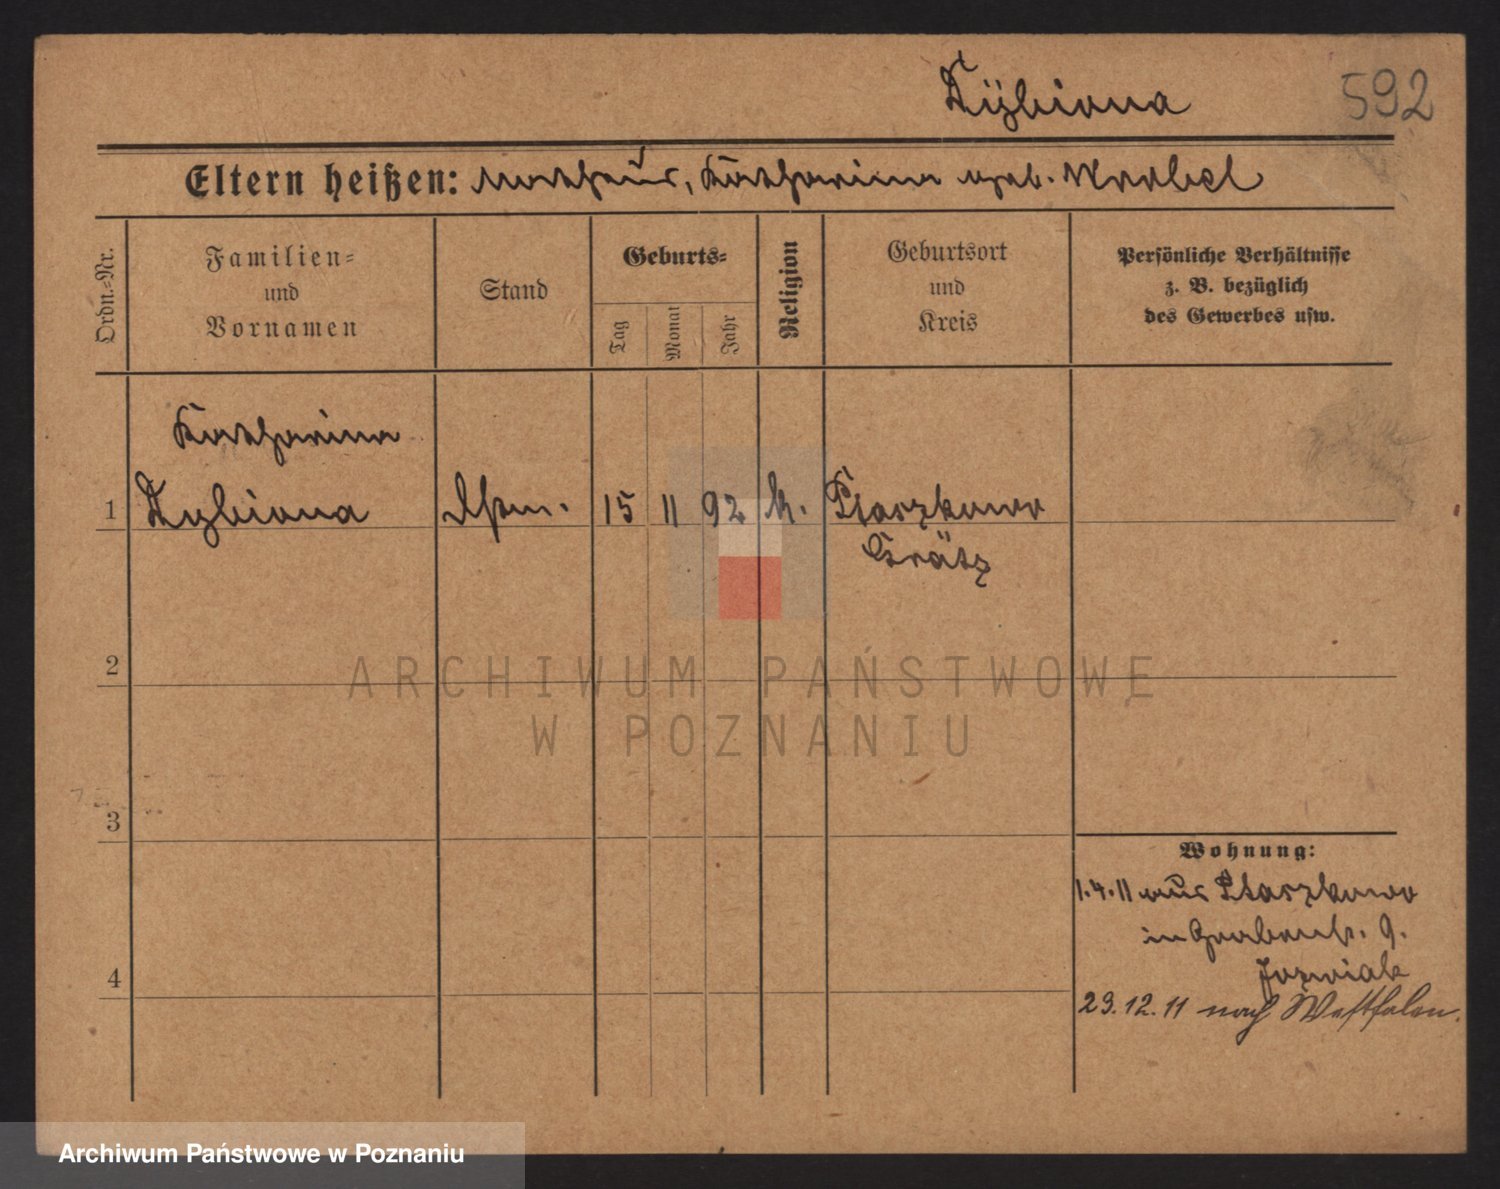 Dybiona
592
Eltern heißen: Mathäus, Katharina geb. Wrobel
Ordn.=Nr.
Familien=
und
Vornamen
Stand
Geburts=
Tag
Monat
Jahr
Religion
Geburtsort
und
Kreis
Persönliche Verhältnisse
z. B. bezüglich
des Gewerbes usw.
Katharina
1 Dybiona 15 11 92 k. Ptaszkowo
Grätz
2
ARCHIWUM PAŃSTWOWE
W POZNANIU
3
Wohnung:
1.4.11 aus Ptaszkowo
in Grabenstr. 9.
4
Jozwiak
23.12.11 nach Westfalen.
Archiwum Państwowe w Poznaniu